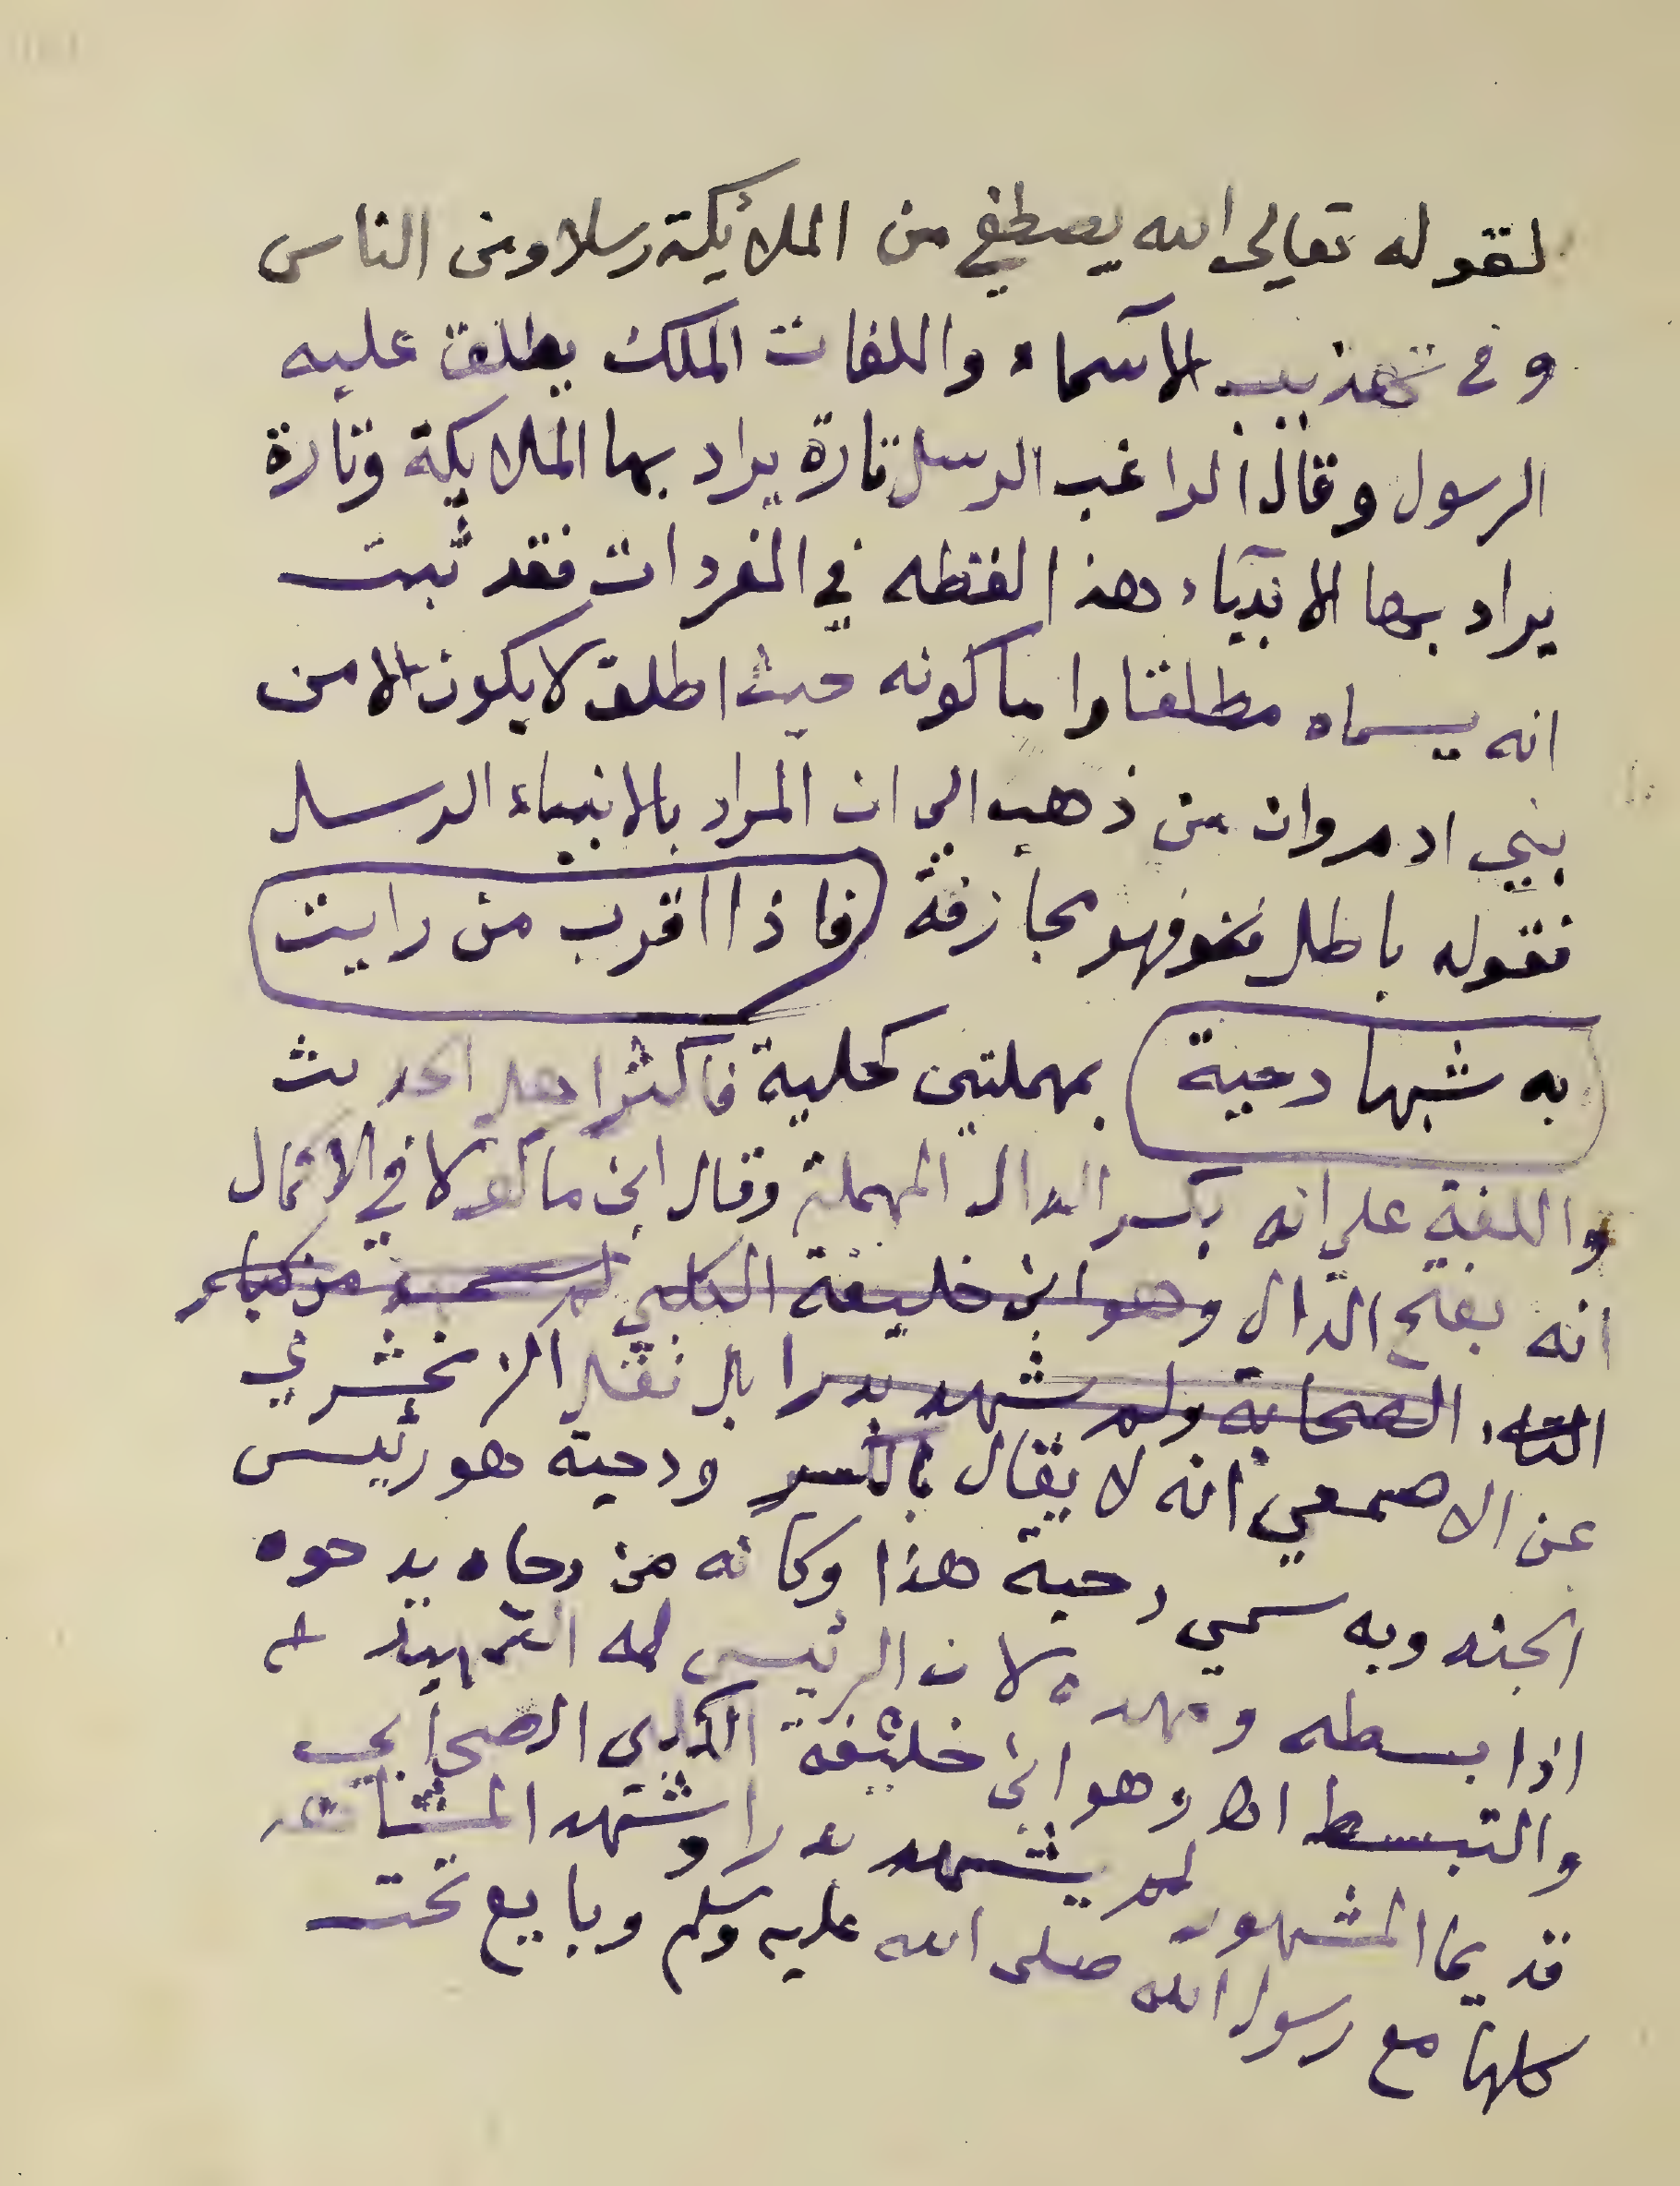 لقوله تعالى الله يصطفي من الملائيكة رسلا ومن الناس
وفي تهذيب الأسماء واللغات الملك يطلق عليه
الرسول وقال الراغب الرسل تارة يراد بها الملايكة وتارة
يراد بها الانبياء هذا لفظه في المفردات فقد ثبت
انه يسماه مطلقا واما كونه حيث اطلق لا يكون الا من
بني ادم وان من ذهب الى ان المراد بالانبياء الرسل
فقوله باطل فهو مجازفة فاذا اقرب من رايت
به شبها دحية بمهملتين كحلية فاكثر اهل الحديث
واللغة على انه بكسر الدال المهملة وقال ابن ماكولا في الاكمال
انه بفتح الدال وهو ابن خليفة الكلبي من كبار
الصحابة ولم شهد بدرا بل نقل الزمخشري
عن الاصمعي انه لا يقال بالكسر ودحية هو رئيس
الجند وبه سمي دحية هذا وكانه من دحاه يدحوه
اذا بسطه ومهده لان الرئيس له التمهيد
والتبسط وهو ابن خليفة الكلبي الصحابي
قديما المشهور لم يشهد بدرا وشهد المشاهد
كلها مع رسول الله صلى الله عليه وسلم وبايع تحت